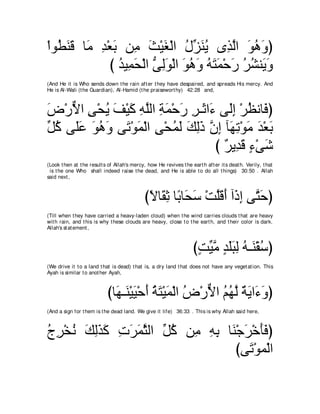 ﴿وَهُوَ الَّذِى يُنَزِّلُ الْغَيْثَ مِن بَعْدِ مَا قَنَطُواْ
وَيَنشُرُ رَحْمَتَهُ وَهُوَ الْوَلِىُّ الْحَمِيدُ ﴾
(And He it is Who sends down the rain after they have despaired, and spreads His mercy. And
He is Al-Wali (the Guardian), Al-Hamid (the praiseworthy) 42:28 and,
﴿فَانظُرْ إِلَى ءَاثَـرِ رَحْمَةِ اللَّهِ كَيْفَ يُحْىِ الاٌّرْضَ
بَعْدَ مَوْتِهَآ إِنَّ ذَلِكَ لَمُحْىِ الْمَوْتَى وَهُوَ عَلَى كُلِّ
شَىْءٍ قَدِيرٌ ﴾
(Look then at the results of Allah's mercy, how He revives the earth after its death. Verily, that
is the one Who shall indeed raise the dead, and He is able to do all things) 30:50 . Allah
said next,
﴿حَتَّى إِذَآ أَقَلَّتْ سَحَابًا ثِقَالاً﴾
(Till when they have carried a heavy-laden cloud) when the wind carries clouds that are heavy
with rain, and this is why these clouds are heavy, close to the earth, and their color is dark.
Allah's statement,
﴿سُقْنَـهُ لِبَلَدٍ مَّيِّتٍ﴾
(We drive it to a land that is dead) that is, a dry land that does not have any vegetation. This
Ayah is similar to another Ayah,
﴿وَءَايَةٌ لَّهُمُ الاٌّرْضُ الْمَيْتَةُ أَحْيَيْنَـهَا﴾
(And a sign for them is the dead land. We give it life) 36:33 . This is why Allah said here,
﴿فَأَخْرَجْنَا بِهِ مِن كُلِّ الثَّمَرَتِ كَذَلِكَ نُخْرِجُ
الْموْتَى﴾